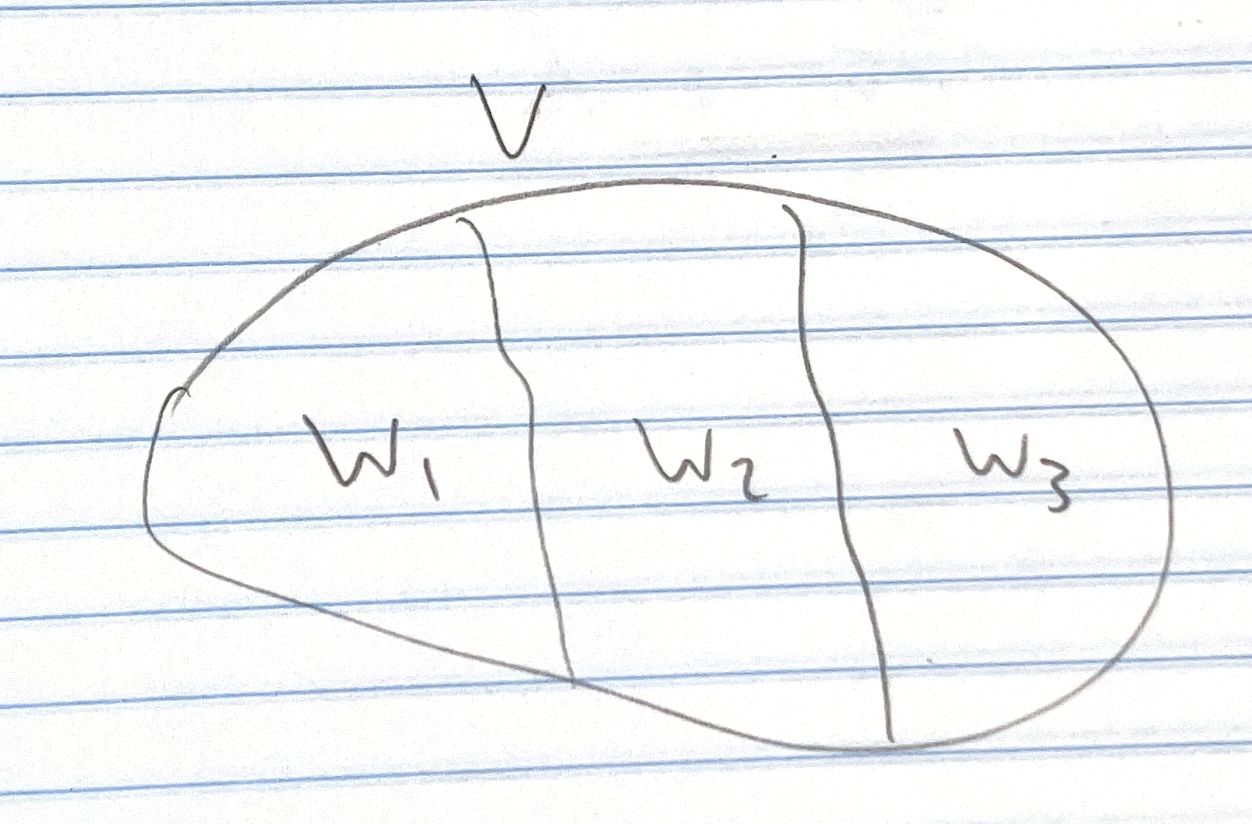 V
W₁ W₂ W₃